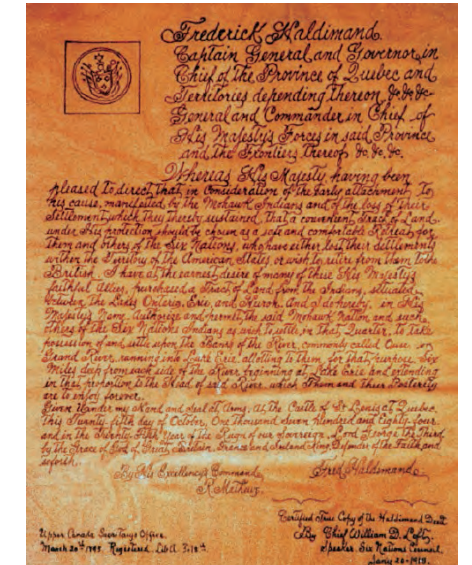 Frederick Haldimand.
Captain General and Governor in
Chief of the Province of Quebec and
Territories depending thereon &c &c &c
General and Commander in Chief of
His Majesty's Forces in said Province
and the Frontiers thereof &c &c &c.
Whereas His Majesty having been
pleased to direct that in Consideration of the early attachment to
his cause, manifested by the Mohawk Indians and of the loss of their
Settlement which they thereby sustained, that a convenient Tract of Land
under His protection should be chosen as a safe and comfortable Retreat for
them and others of the Six Nations, who have either lost their Settlements
within the Territory of the American States or wish to retire from them to the
British. I have at the earnest desire of many of these His Majesty's
faithful Allies, purchased a Tract of Land from the Indians, situated
between the Lakes Ontario, Erie, and Huron. And I do hereby, in His
Majesty's Name, Authorize and permit the said Mohawk Nation and such
others of the Six Nations Indians as wish to settle in that Quarter, to take
possession of and settle upon the Banks of the River, commonly called Ouse or
Grand River, running into Lake Erie, allotting to them for that purpose Six
Miles deep from each side of the River beginning at Lake Erie and extending
in that proportion to the Head of said River, which Them and Their Posterity
are to enjoy forever.
Given Under my Hand and Seal at Arms, at the Castle of St Lewis at Quebec,
this Twenty fifth day of October, One thousand seven hundred and Eighty four
and in the Twenty Fifth Year of the Reign of our Sovereign Lord George the Third
by the Grace of God of Great Britain, France and Ireland King Defender of the Faith and
so forth.
By His Excellency's Command,
Fred Haldimand.
R. Mathews
Certified True Copy of the Haldimand Deed
By Chief William D. Loft,
Speaker Six Nations Council.
Upper Canada Secretarys Office.
March 20th 1795. Registered. Lib.